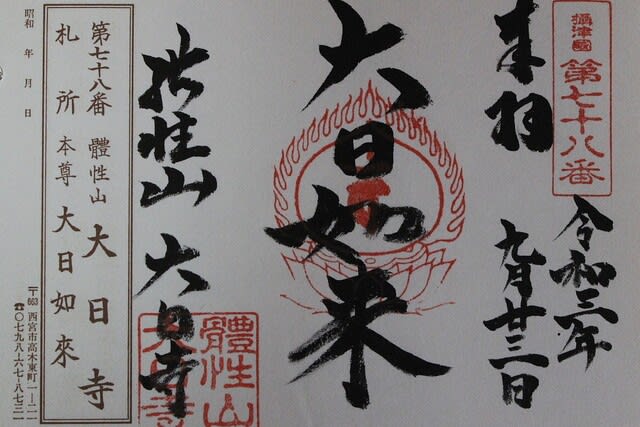 攝津國
第七十八番
奉拝
令和三年
九月廿三日
大日如来
体性山
大日寺
體性山
大日寺
第七十八番 體性山 大日寺
札所 本尊 大日如來
昭和 年 月 日
〒663 西宮市高木東町一-二一
☎〇七九八-六七-八七三一